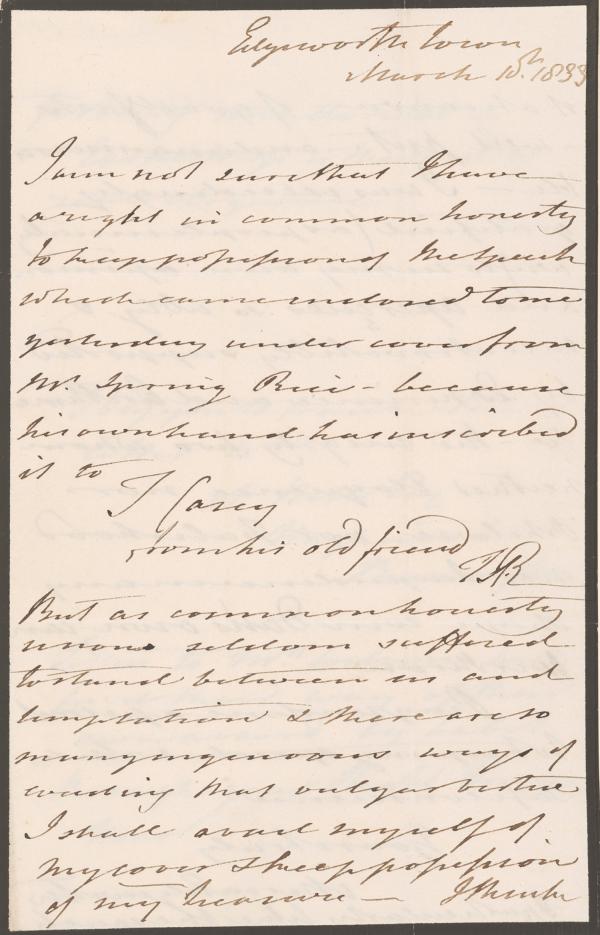 Edgeworth Town
March 15th. 1833
I am not sure that I have
a right in common honesty
to keep possession of the speech
which came inclosed to me
yesterday under cover from
Mr. Spring Rice - because
his own hand has inscribed
it to
T Casey
from his old friend
TSR
But as common honesty
is now seldom suffered
to stand between us and
temptation & there are so
many ingenious ways of
evading that vulgar virtue
I shall avail myself of
my cover & keep possession
of my treasure — I think